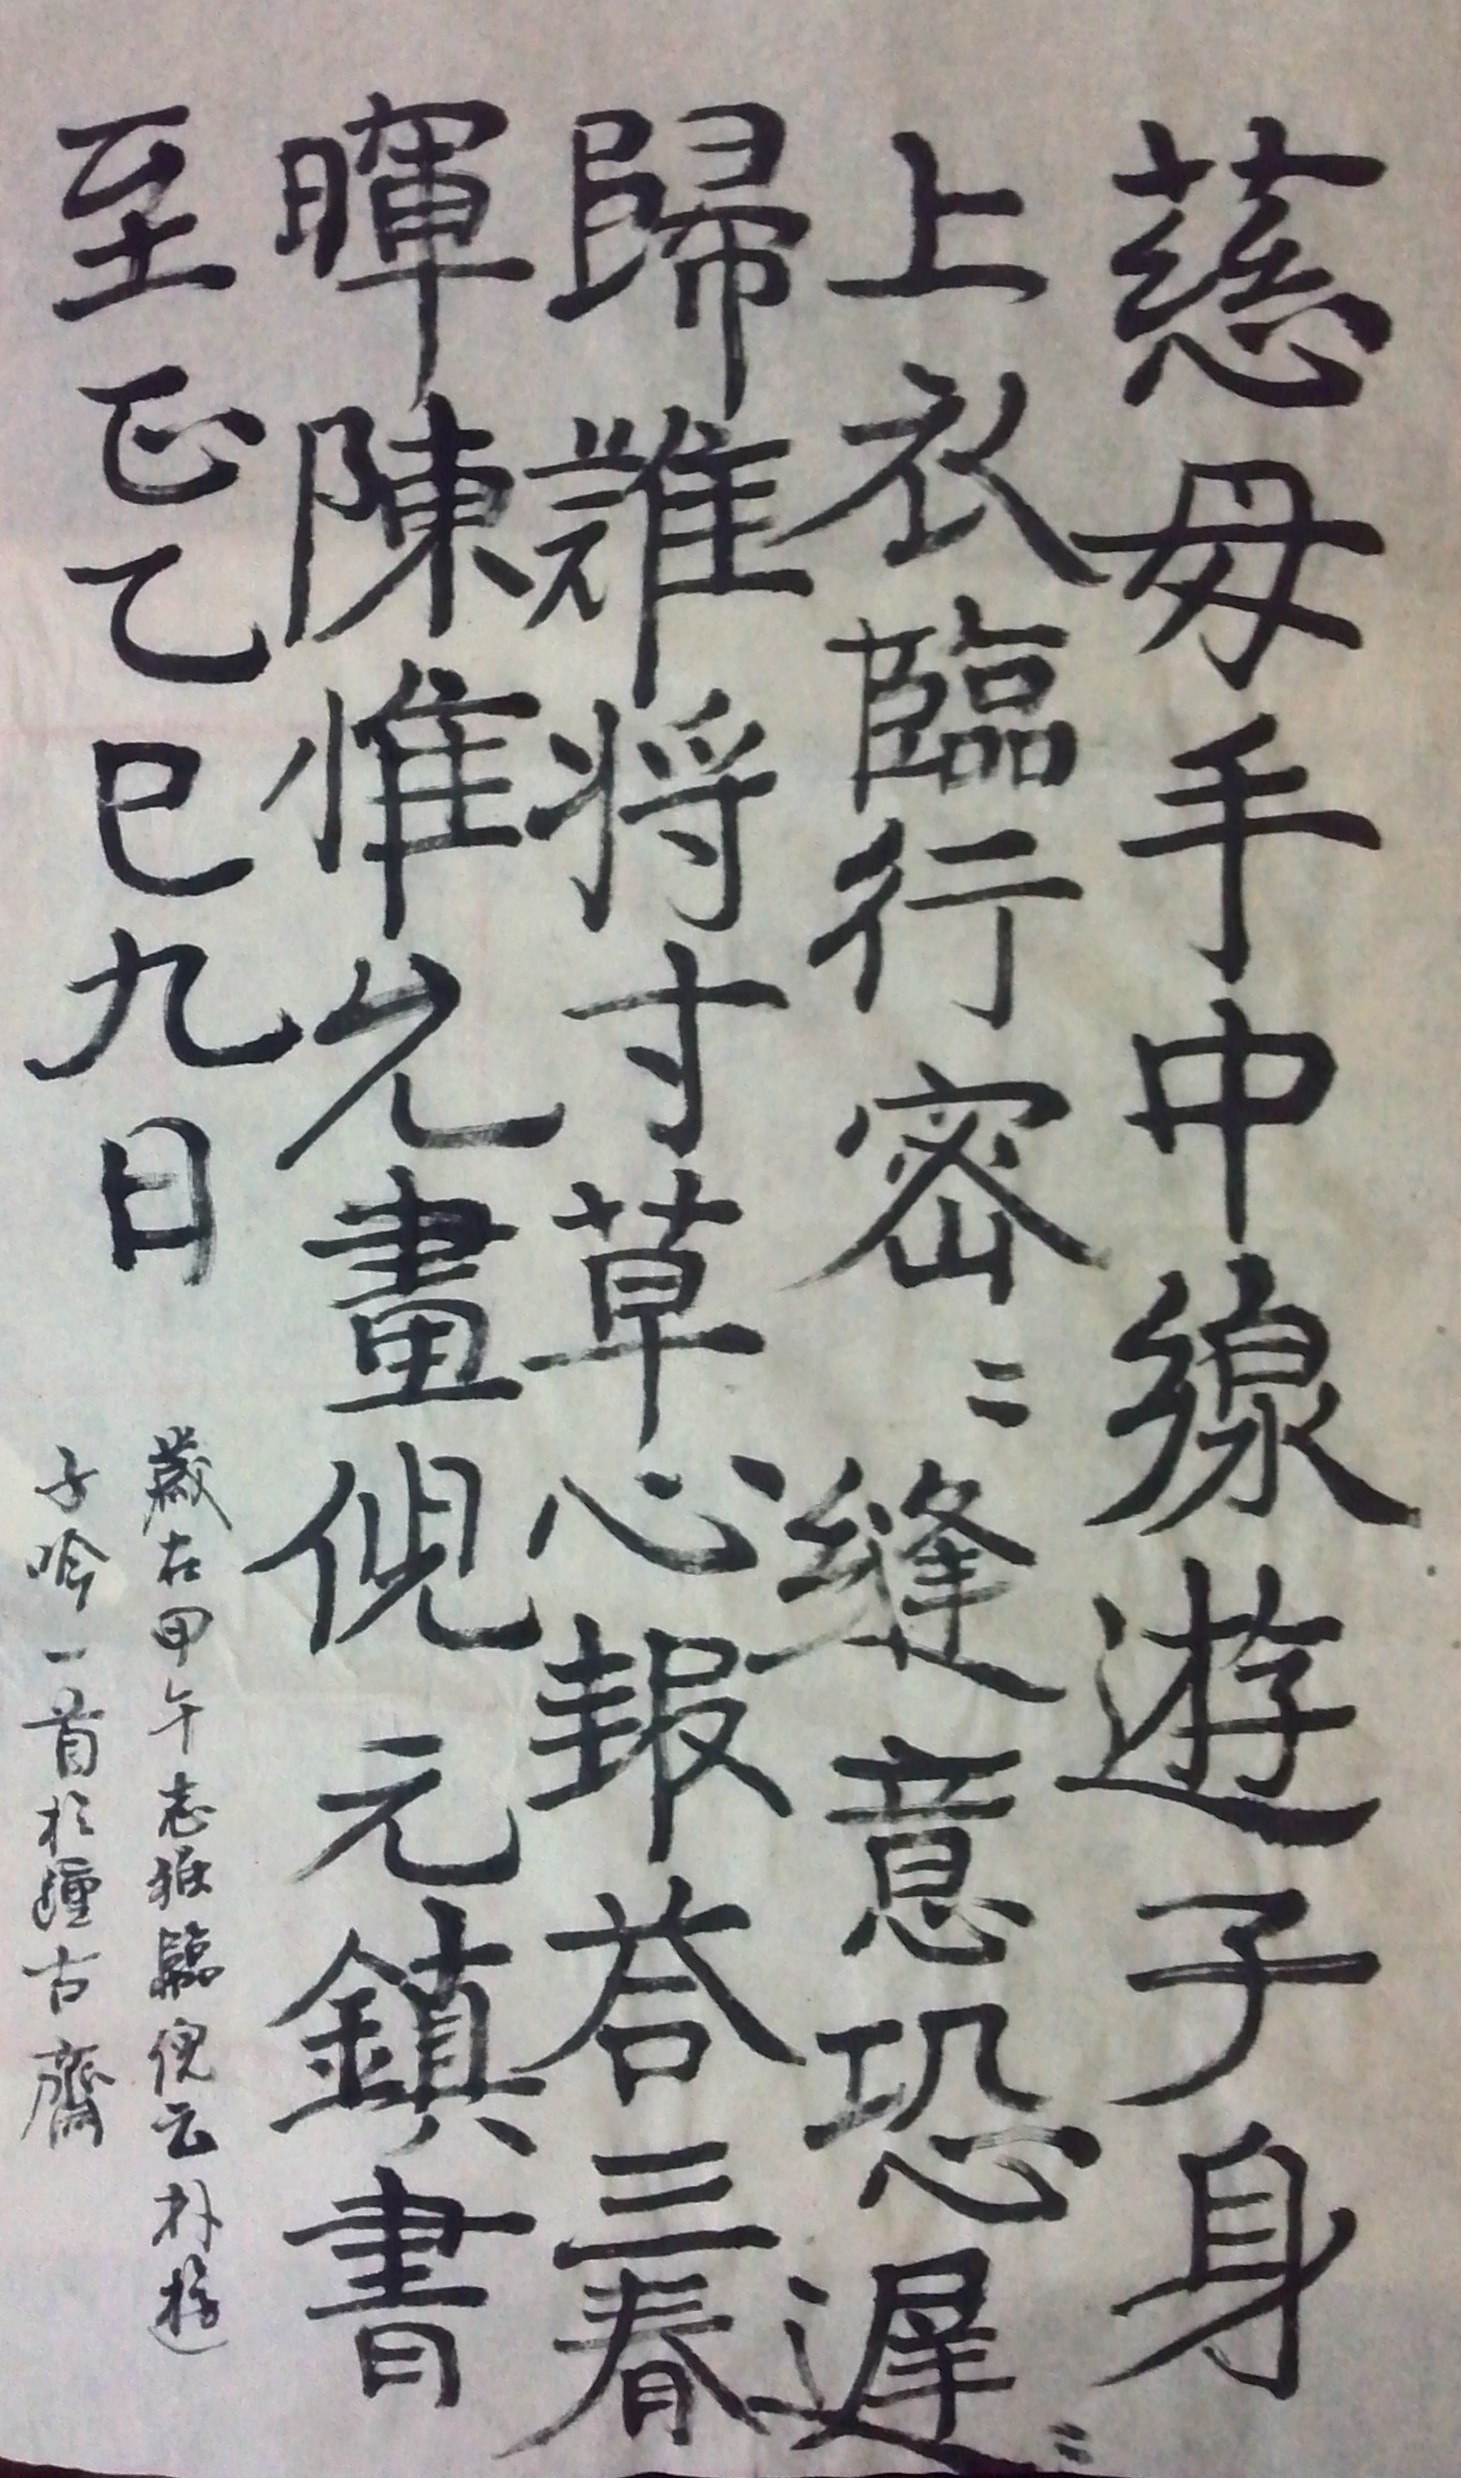 慈母手中線遊子身
上衣臨行密〻縫意恐遲〻
歸誰将寸草心報荅三春
暉陳惟允畫倪元鎮書
至正乙巳九日
歲在甲午志雅臨倪云林游
子吟一首於躔古齋